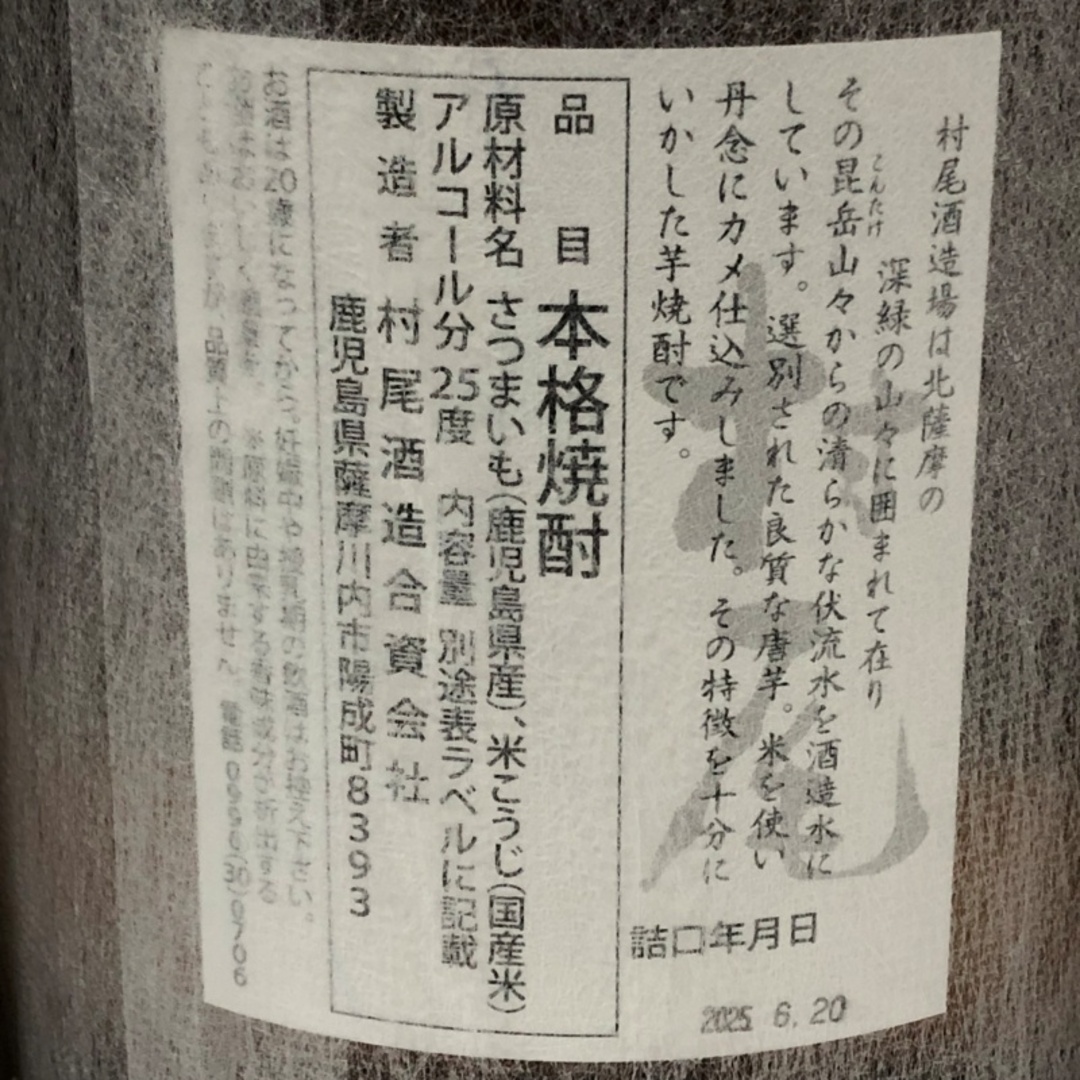 村尾酒造場は北薩摩の
深緑の山々に囲まれて在り
こんたけ
その昆岳山々からの清らかな伏流水を酒造水に
しています。選別された良質な唐芋。米を使い
丹念にカメ仕込みしました。その特徴を十分に
いかした芋焼酎です。
村尾
詰口年月日
2025 6.20
品目 本格焼酎
原材料名 さつまいも(鹿児島県産)、米こうじ(国産米)
アルコール分 25度 内容量 別途表ラベルに記載
製造者 村尾酒造合資会社
鹿児島県薩摩川内市陽成町8393
お酒は20歳になってから。妊娠中や授乳期の飲酒はお控え下さい。
※原料に由来する香味成分が析出する
品質上の問題はありません 電話0996(30)0706